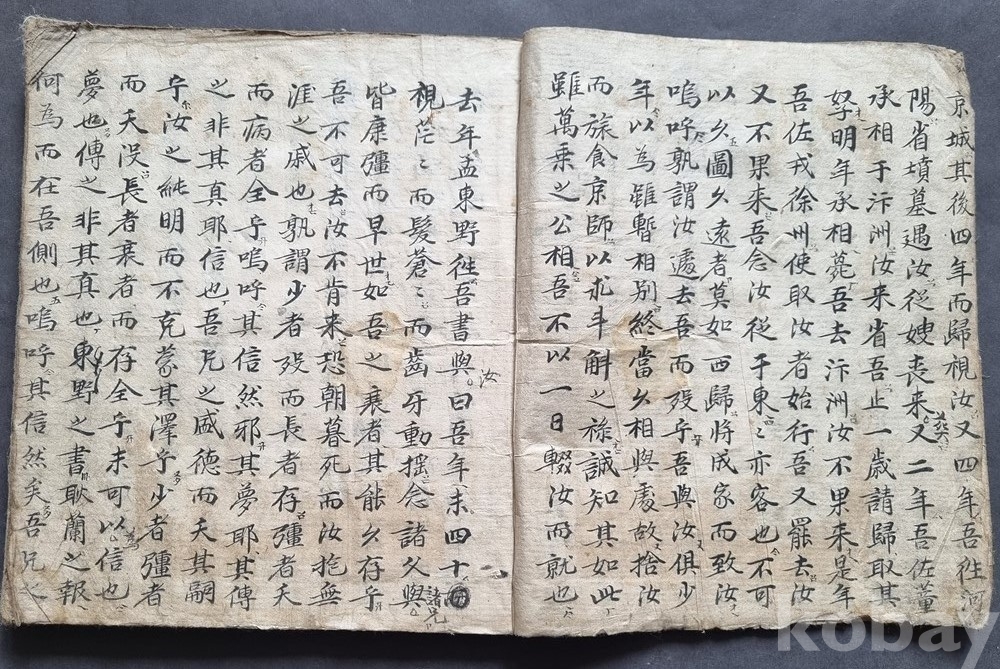 京城其後四年而歸視汝又四年吾往河
陽省墳墓遇汝從嫂喪来葬又二年吾佐董
承相于汴洲汝来省吾止一歲請歸取其
孥明年承相薨吾去汴洲汝不果来是年
吾佐戎徐州使取汝者始行吾又罷去汝
又不果来吾念汝從于東〻亦客也不可
以久圖久遠者莫如西歸將成家而致汝
嗚呼孰謂汝遽去吾而歿乎吾與汝俱少
年以為雖暫相別終當久相與處故捨汝
而旅食京師以求斗斛之禄誠知其如此
雖萬乗之公相吾不以一日輟汝而就也
去年孟東野徃吾書與汝曰吾年未四十
視茫〻而髮蒼〻而齒牙動揺念諸父與諸兄
皆康彊而早世如吾之衰者其能久存乎
吾不可去汝不肯来恐朝暮死而汝抱無
涯之戚也孰謂少者歿而長者存彊者夭
而病者全乎嗚呼其信然邪其夢耶其傳
之非其真耶信也吾兄之盛德而夭其嗣
乎汝之純明而不克蒙其澤乎少者彊者
而夭沒長者衰者而存全乎未可以信也
夢也傳之非其真也東野之書耿蘭之報
何為而在吾側也嗚呼其信然矣吾兄之
kobay